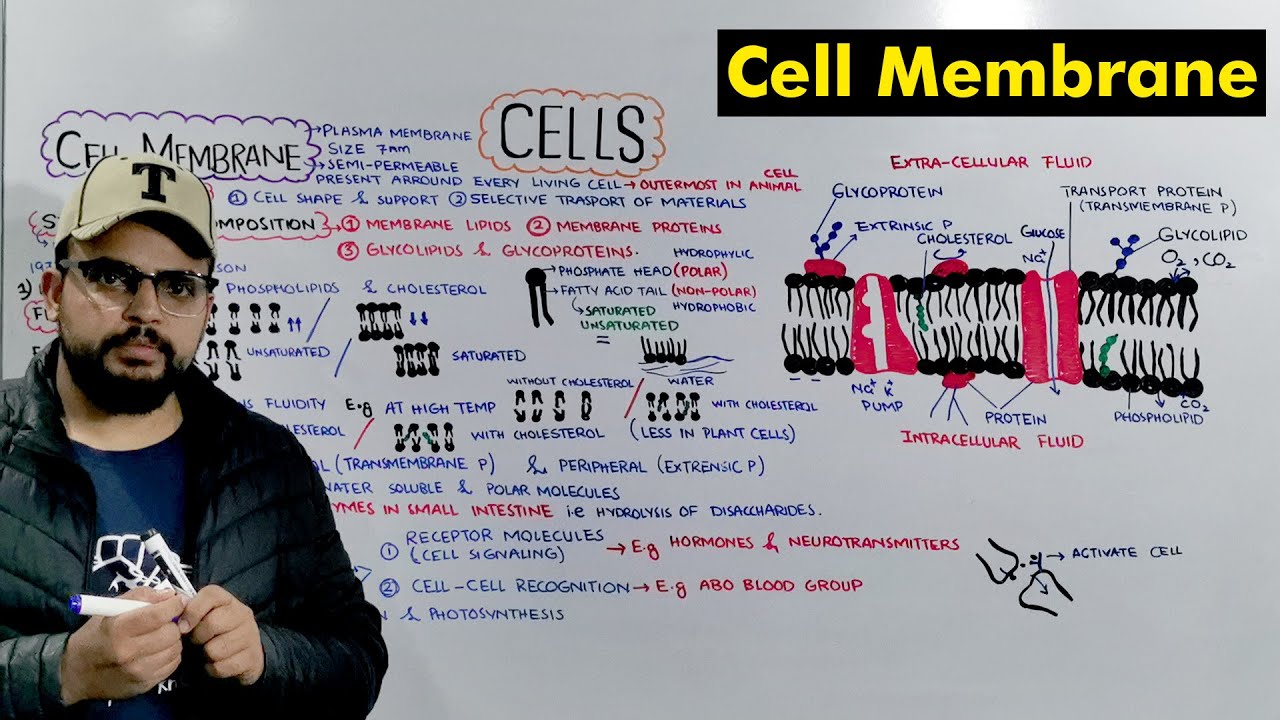 Cell Membrane
CELLS
CELL MEMBRANE
→ PLASMA MEMBRANE
SIZE 7nm
→ SEMI-PERMEABLE
PRESENT ARROUND EVERY LIVING CELL → OUTERMOST IN ANIMAL CELL
① CELL SHAPE & SUPPORT ② SELECTIVE TRASPORT OF MATERIALS
OMPOSITION → ① MEMBRANE LIPIDS ② MEMBRANE PROTEINS
③ GLYCOLIPIDS & GLYCOPROTEINS.
PHOSPHOLIPIDS & CHOLESTEROL
UNSATURATED
SATURATED
HYDROPHYLIC
PHOSPHATE HEAD (POLAR)
FATTY ACID TAIL (NON-POLAR)
HYDROPHOBIC
SATURATED
UNSATURATED
=
WATER
FLUIDITY E.g AT HIGH TEMP
WITHOUT CHOLESTEROL
WITH CHOLESTEROL
WITH CHOLESTEROL
(LESS IN PLANT CELLS)
(TRANSMEMBRANE P) & PERIPHERAL (EXTRENSIC P)
WATER SOLUBLE & POLAR MOLECULES
YMES IN SMALL INTESTINE i.e HYDROLYSIS OF DISACCHARIDES.
① RECEPTOR MOLECULES
(CELL SIGNALING) → E.g HORMONES & NEUROTRANSMITTERS
② CELL-CELL RECOGNITION → E.g ABO BLOOD GROUP
& PHOTOSYNTHESIS
EXTRA-CELLULAR FLUID
GLYCOPROTEIN
EXTRINSIC P
CHOLESTEROL
GLUCOSE
Na+
TRANSPORT PROTEIN
(TRANSMEMBRANE P)
GLYCOLIPID
O2, CO2
Na+ K+
PUMP
PROTEIN
CO2
PHOSPHOLIPID
INTRACELLULAR FLUID
→ ACTIVATE CELL
T